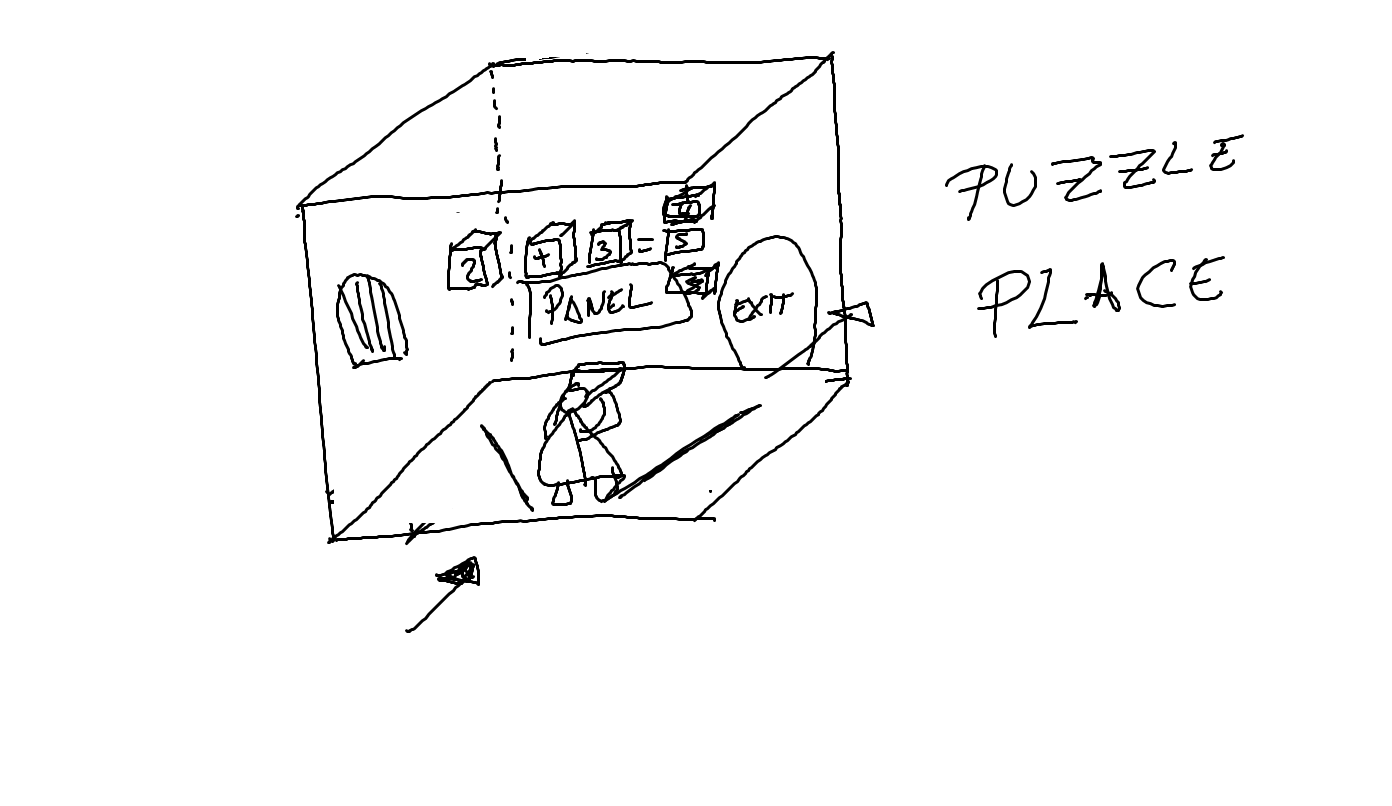 PUZZLE
PLACE
2 + 3 = 5
PANEL
EXIT